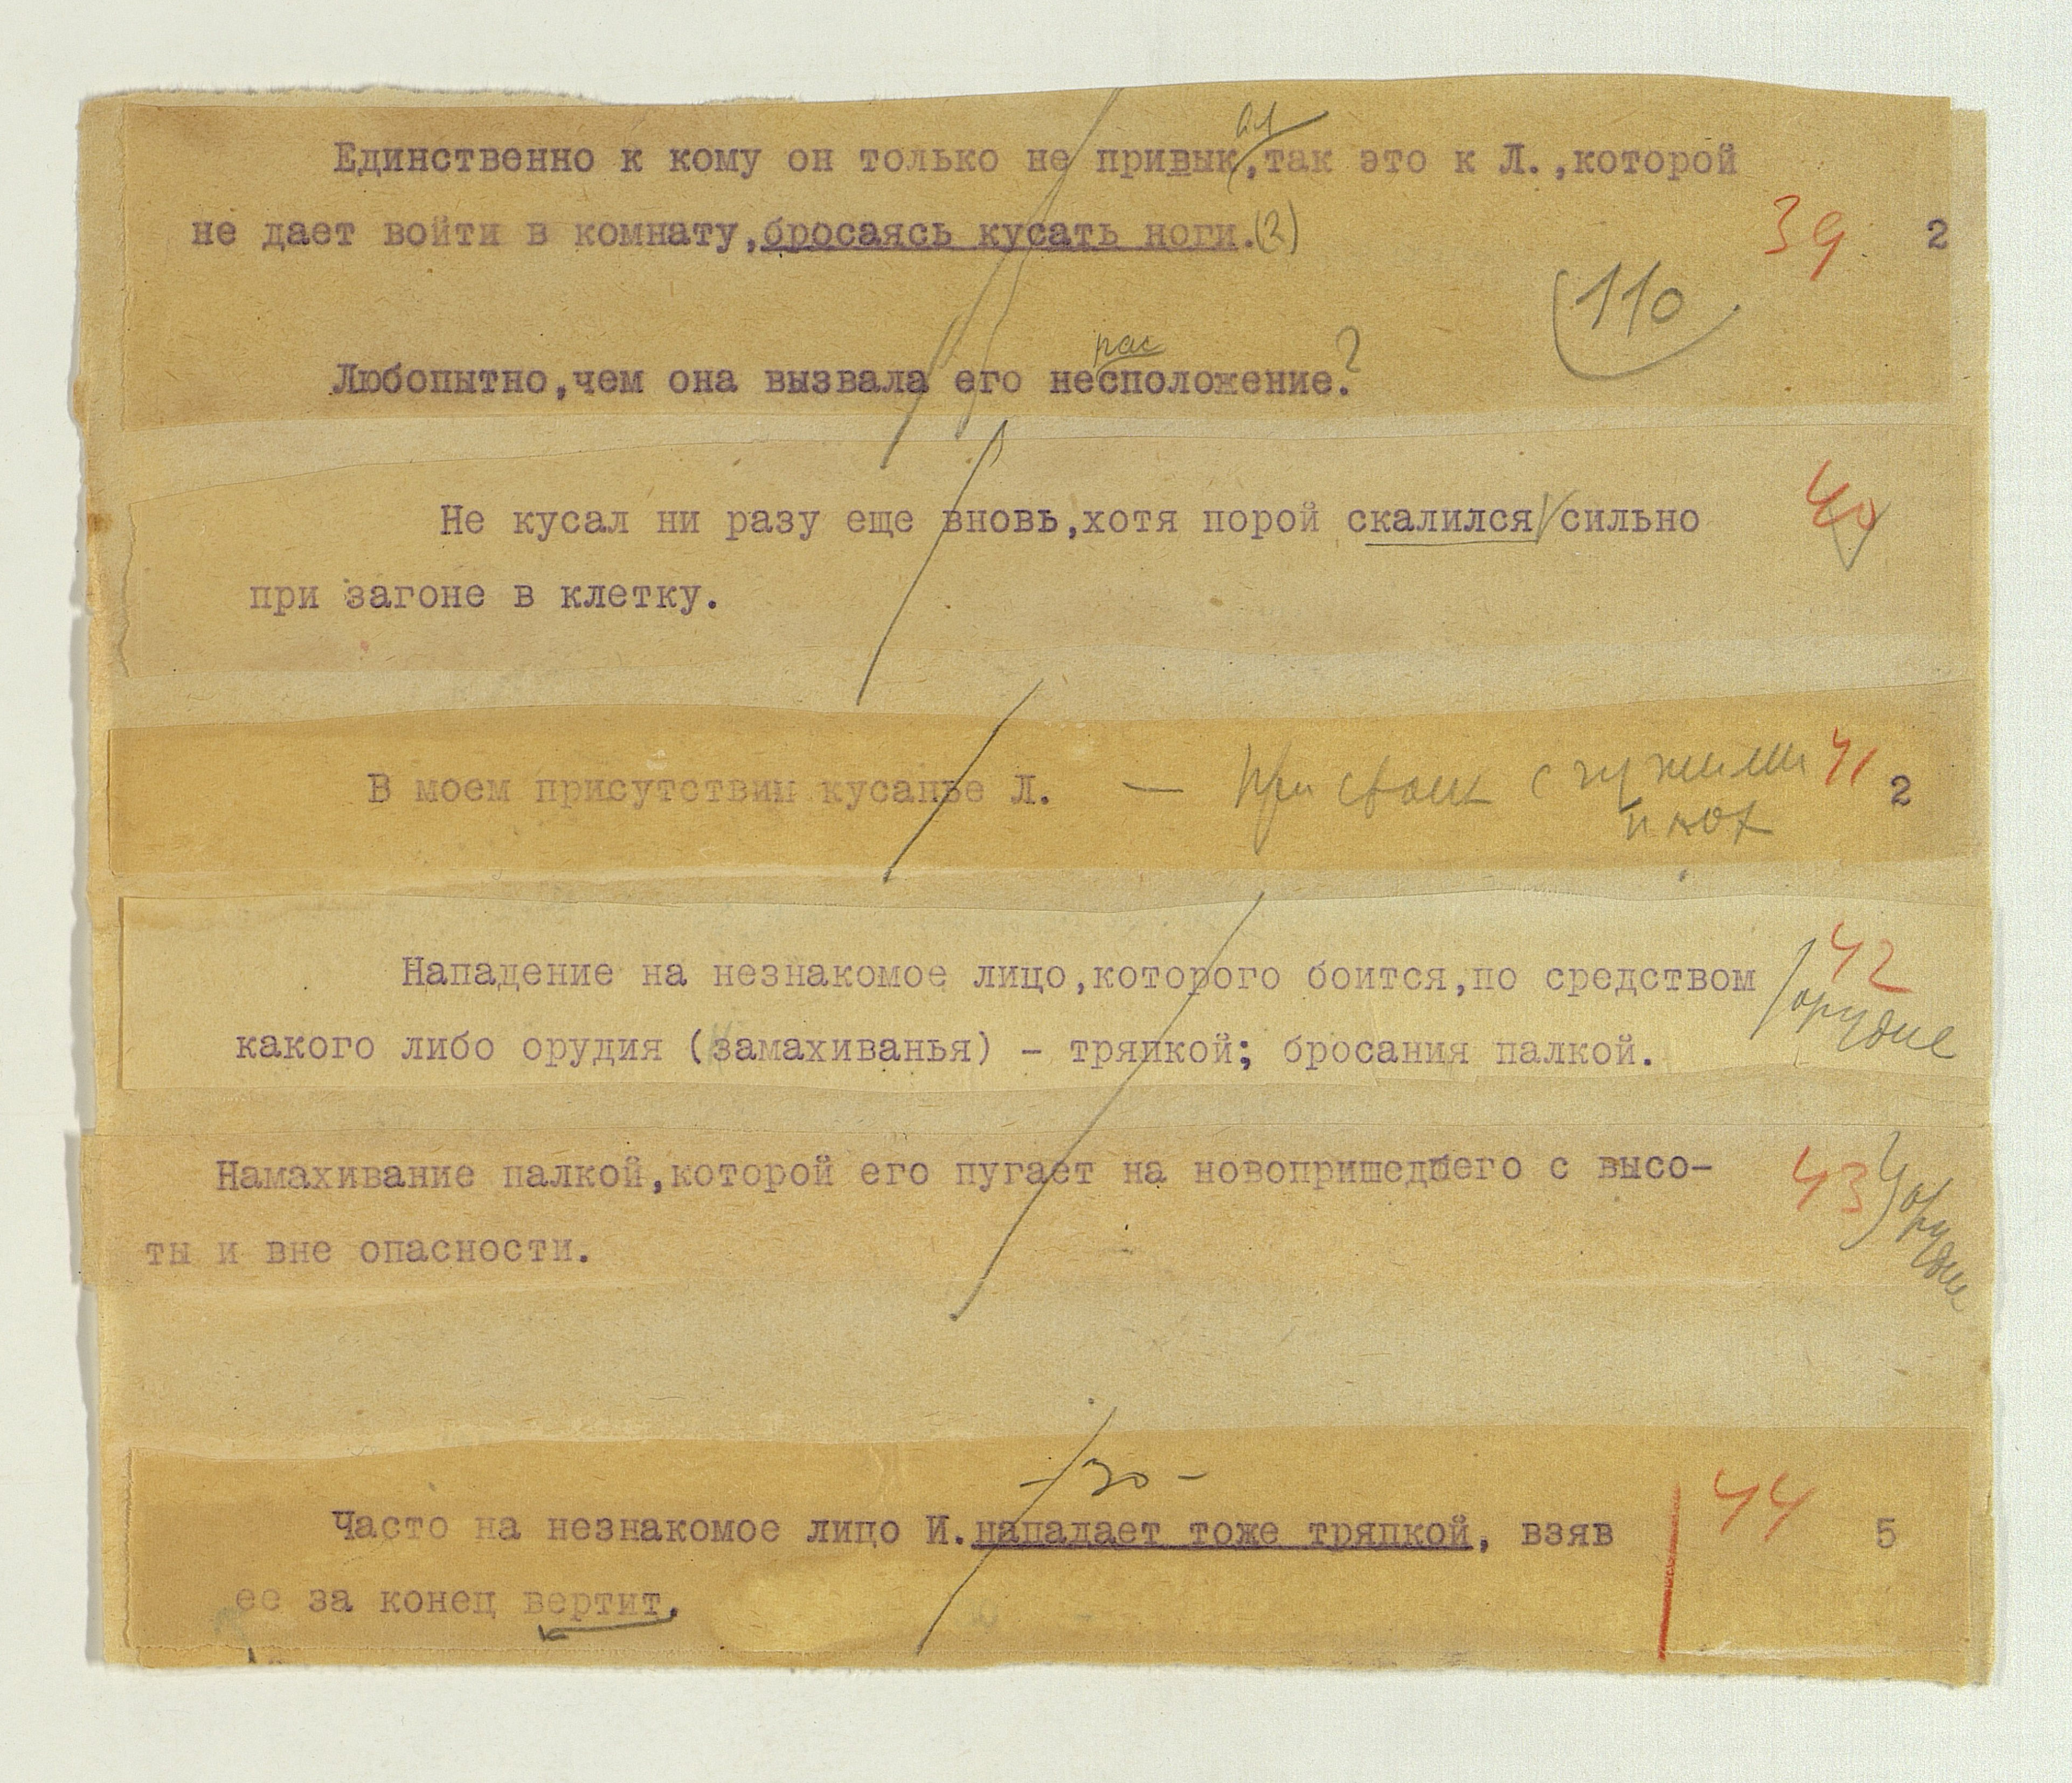 Единственно к кому он только не привык,так это к Л.,которой
не дает войти в комнату,бросаясь кусать ноги.(2)
39 2
110
рас ?
Любопытно,чем она вызвала его несположение.
Не кусал ни разу еще вновь,хотя порой скалился сильно
40
при загоне в клетку.
В моем присутствии кусанье Л. — при своих с чужими
41 2
42
Нападение на незнакомое лицо,которого боится,по средством
орудие
какого либо орудия (замахиванья) - тряпкой; бросания палкой.
Намахивание палкой,которой его пугает на новопришедшего с высо-
43 орудие
ты и вне опасности.
-30-
Часто на незнакомое лицо И.нападает тоже тряпкой, взяв
44 5
ее за конец вертит.